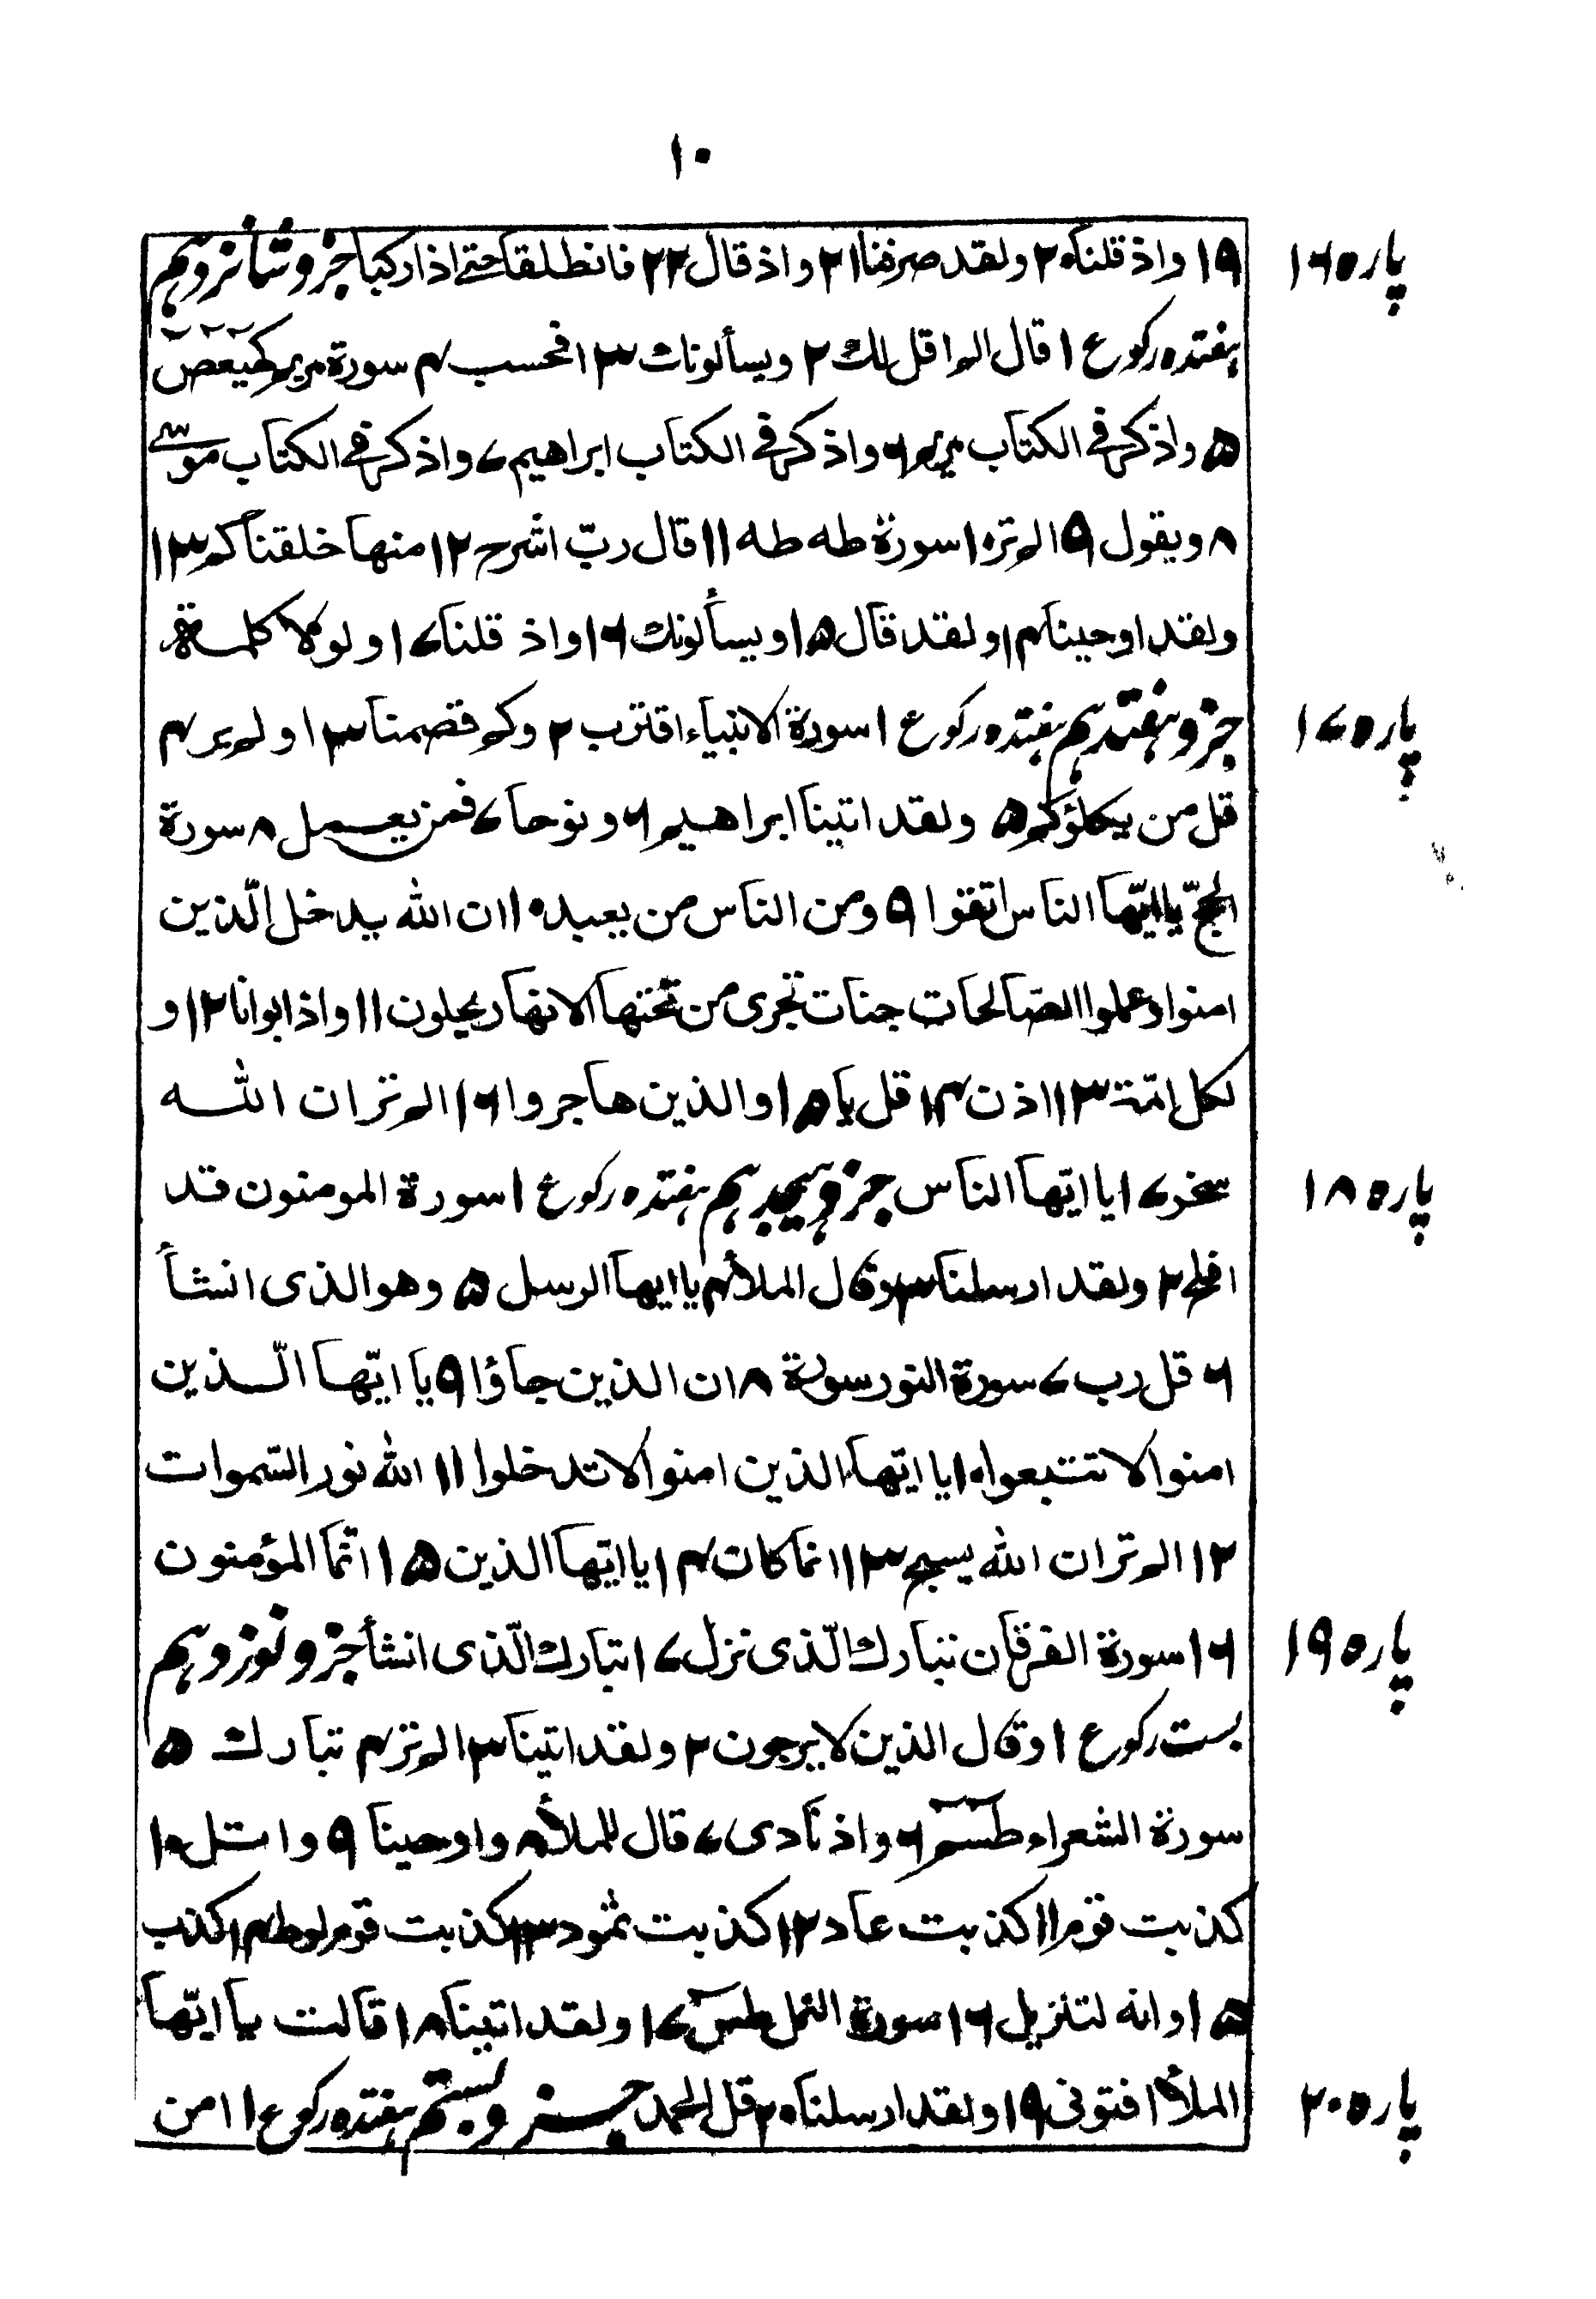 ۱۰
۱۹ واذ قلنا ۲۰ ولقد صرفنا ۲۱ واذ قال ۲۲ فانطلقا حتى اذا ركبا جزو شانزدہم
پارہ ۱۶
ہفتدہ رکوع ۱ قال الم اقل لك ۲ ويسألونك ۳ افحسب ۴ سورة مريم كهيعص
۵ واذكر فى الكتاب مريم ۶ واذكر فى الكتاب ابراهيم ۷ واذكر فى الكتاب موسى
۸ ويقول ۹ الم تر ۱۰ سورة طه طه ۱۱ قال ربّ اشرح ۱۲ منها خلقناكم ۱۳
ولقد اوحينا ۱۴ ولقد قال ۱۵ ويسألونك ۱۶ واذ قلنا ۱۷ ولولا كلمة
جزو ہفتدہم ہفتدہ رکوع ۱ سورة الانبياء اقترب ۲ وكم قصمنا ۳ اولم ير ۴
پارہ ۱۷
قل من يكلؤكم ۵ ولقد اتينا ابراهيم ۶ ونوحا ۷ فمن يعمل ۸ سورة
الحجّ يا ايّها الناس اتقوا ۹ ومن الناس من يعبد ۱۰ ان الله يدخل الّذين
امنوا وعملوا الصّالحات جنات تجرى من تحتها الانهار يحلون ۱۱ واذ ابوانا ۱۲ و
لكل امّة ۱۳ اذن ۱۴ قل يا ۱۵ والذين هاجروا ۱۶ الم تر ان الله
سخر ۱۷ يا ايّها الناس جزو ہیجدہم ہفتدہ رکوع ۱ سورة المومنون قد
پارہ ۱۸
افلح ۲ ولقد ارسلنا ۳ وقال الملأ ۴ يا ايها الرسل ۵ وهو الذى انشأ
۶ قل رب ۷ سورة النور سورة ۸ ان الذين جاؤا ۹ يا ايّها الّذين
امنوا لا تتبعوا ۱۰ يا ايّها الذين امنوا لا تدخلوا ۱۱ الله نور السّموات
۱۲ الم تر ان الله يسبح ۱۳ انما كان ۱۴ يا ايّها الذين ۱۵ انّما المؤمنون
۱۶ سورة الفرقان تبارك الّذى نزل ۱۷ تبارك الّذى انشأ جزو نوزدہم
پارہ ۱۹
بست رکوع ۱ وقال الذين لا يرجون ۲ ولقد اتينا ۳ الم تر ۴ تبارك ۵
سورة الشعراء طسم ۶ واذ نادى ۷ قال للملأ ۸ واوحينا ۹ واتل ۱۰
كذبت قوم ۱۱ كذبت عاد ۱۲ كذبت ثمود ۱۳ كذبت قوم لوط ۱۴ كذب
۱۵ وانه لتنزيل ۱۶ سورة النمل طس ۱۷ ولقد اتينا ۱۸ قالت يا ايّها
الملأ افتونى ۱۹ ولقد ارسلنا ۲۰ قل الحمد جزو بستم ہفتدہ رکوع ۱ امن
پارہ ۲۰